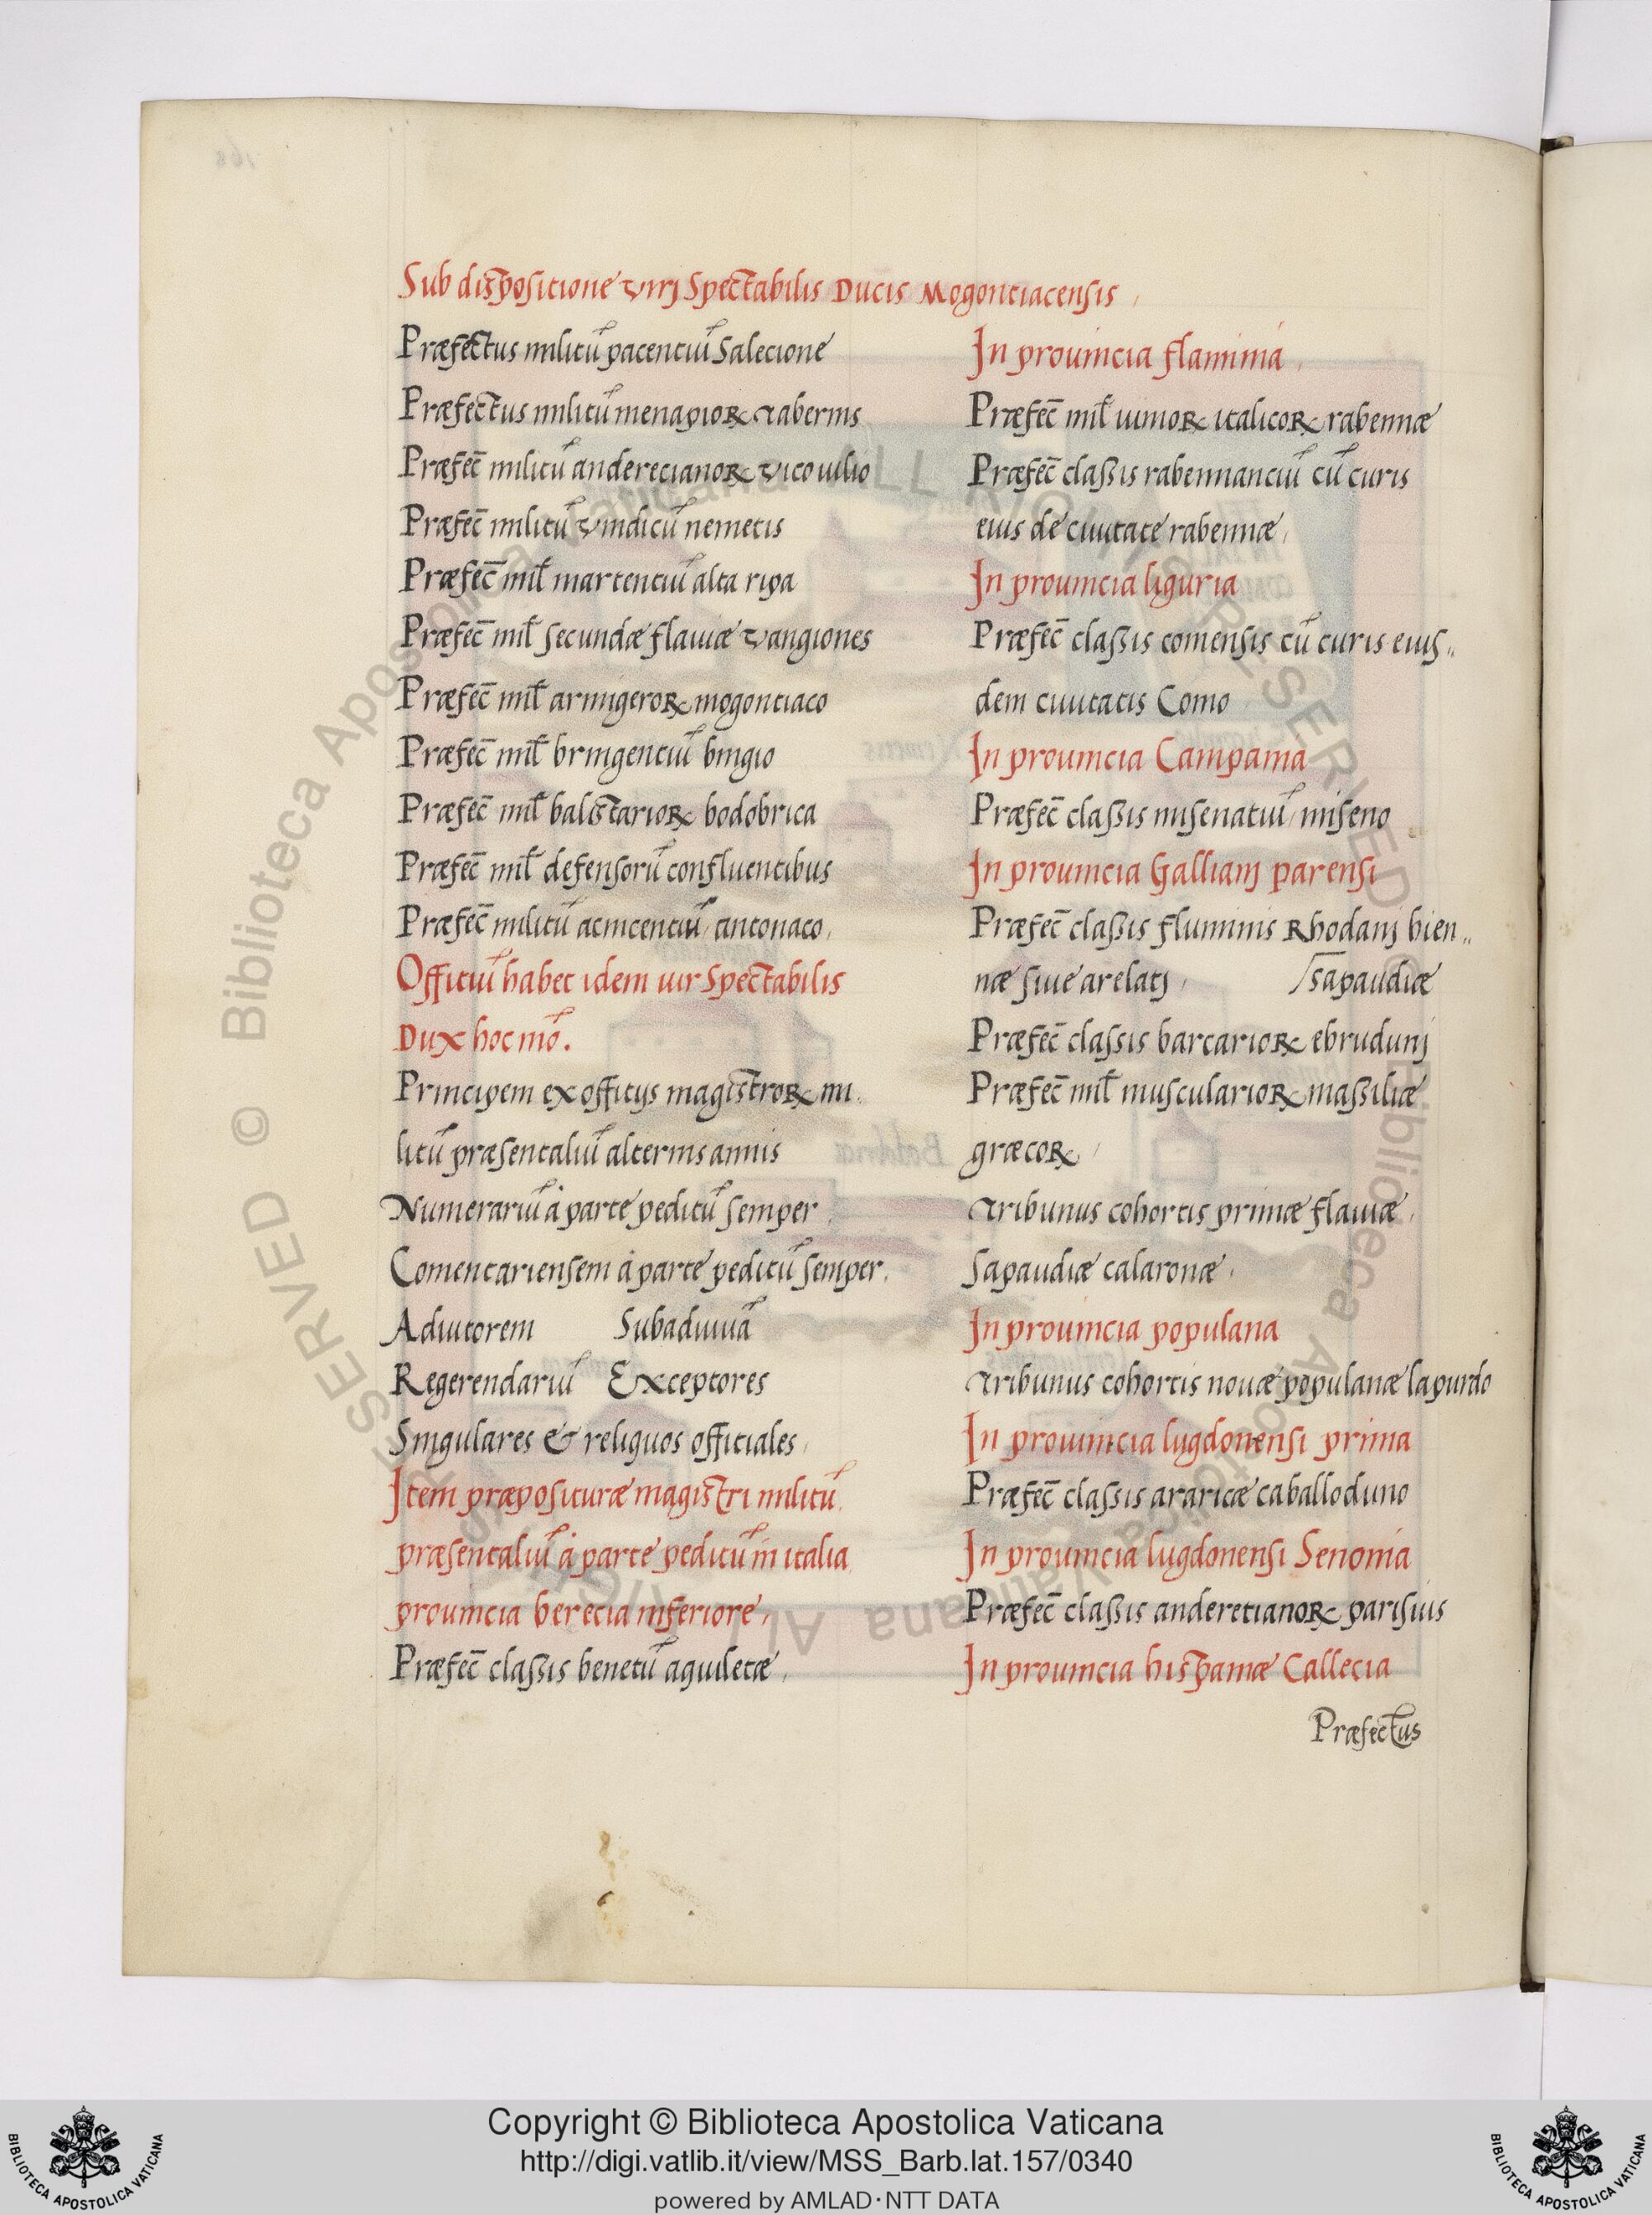 Sub dispositione virj Spectabilis Ducis Mogontiacensis
Præfectus militū pacentiū Salecione
Præfectus militū menapioꝝ taberms
Præfec̄ militū anderecianoꝝ vico iulio
Præfec̄ militū vindicū nemetis
Præfec̄ mil̄ martentiū alta ripa
Præfec̄ mil̄ secundæ flauiæ vangiones
Præfec̄ mil̄ armigeroꝝ mogontiaco
Præfec̄ mil̄ bringentiū bingio
Præfec̄ mil̄ balistarioꝝ bodobrica
Præfec̄ mil̄ defensorū confluentibus
Præfec̄ militū acincentiū antonaco
Officiū habet idem uir Spectabilis
Dux hoc mō.
Principem ex officijs magistroꝝ mi
litū præsentaliū alternis annis
Numerariū à parte peditū semper
Comentariensem à parte peditū semper
Adiutorem Subadiuuā
Regerendariū Exceptores
Singulares & reliquos officiales
Item præpositurae magistri militū
præsentaliū à parte peditū in italia
prouincia beretia inferiore
Præfec̄ classis benetū aquiletæ
In prouincia flaminia
Præfec̄ mil̄ iunioꝝ italicoꝝ rabennæ
Præfec̄ classis rabennanciū cū curis
eius de ciuitate rabennæ
In prouincia liguria
Præfec̄ classis comensis cū curis eius〃
dem ciuitatis Como
In prouincia Campania
Præfec̄ classis misenatiū miseno
In prouincia Galliam parensi
Præfec̄ classis fluminis Rhodanj bien〃
næ siue arelatj sapaudiæ
Præfec̄ classis barcarioꝝ ebrudunj
Præfec̄ mil̄ muscularioꝝ massiliæ
græcoꝝ
Tribunus cohortis primæ flauiæ
Sapaudiæ calaronæ
In prouincia populana
Tribunus cohortis nouæ populanæ lapurdo
In prouincia lugdonensi prima
Præfec̄ classis araricæ caballoduno
In prouincia lugdonensi Senonia
Præfec̄ classis anderetianoꝝ parisius
In prouincia hispaniæ Callecia
Præfectus
Copyright © Biblioteca Apostolica Vaticana
http://digi.vatlib.it/view/MSS_Barb.lat.157/0340
powered by AMLAD·NTT DATA
BIBLIOTECA APOSTOLICA VATICANA
BIBLIOTECA APOSTOLICA VATICANA